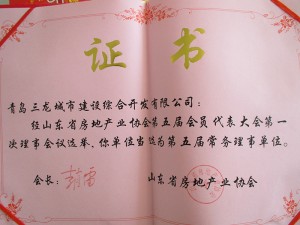 证书
青岛三龙城市建设综合开发有限公司：
经山东省房地产业协会第五届会员代表大会第一
次理事会议选举，你单位当选为第五届常务理事单位。
会长：
山东省房地产业协会